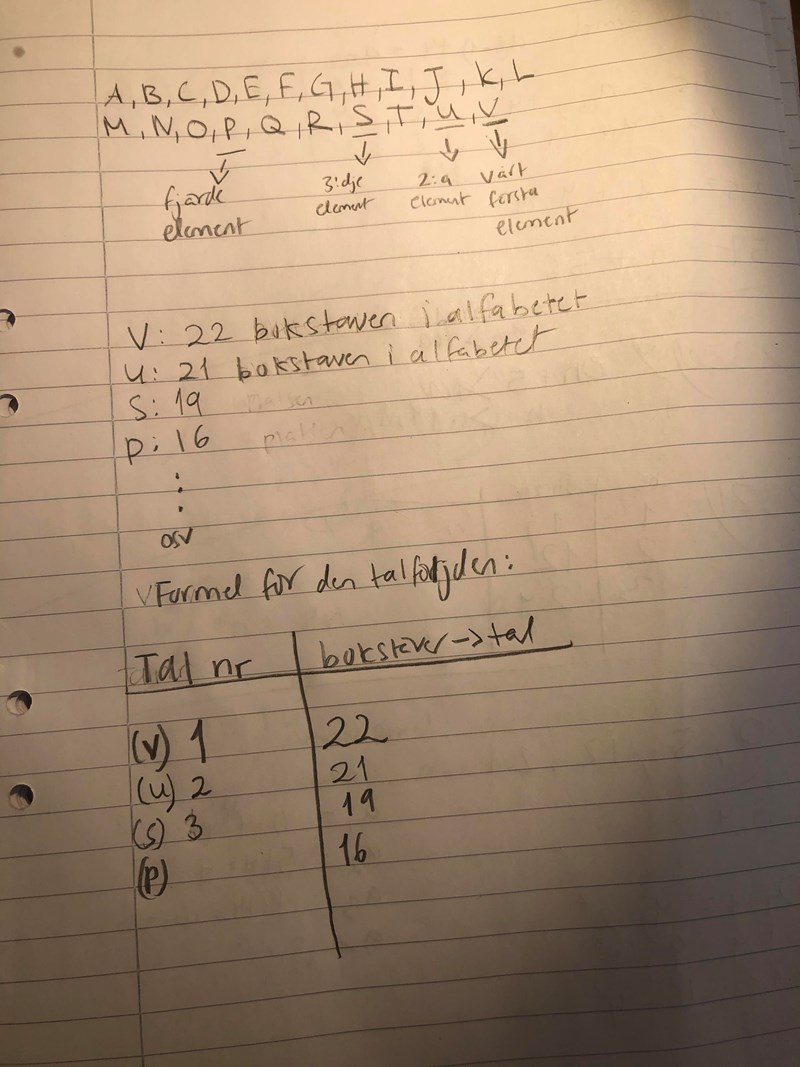 A, B, C, D, E, F, G, H, I, J, K, L
M, N, O, P, Q, R, S, T, U, V
fjärde element
3:dje element
2:a element
vårt första element
V: 22 bokstaven i alfabetet
U: 21 bokstaven i alfabetet
S: 19 platsen
P: 16 platsen
osv
Formel för den talföljden:
Tal nr bokstäver → tal
(V) 1 22
(U) 2 21
(S) 3 19
(P) 16